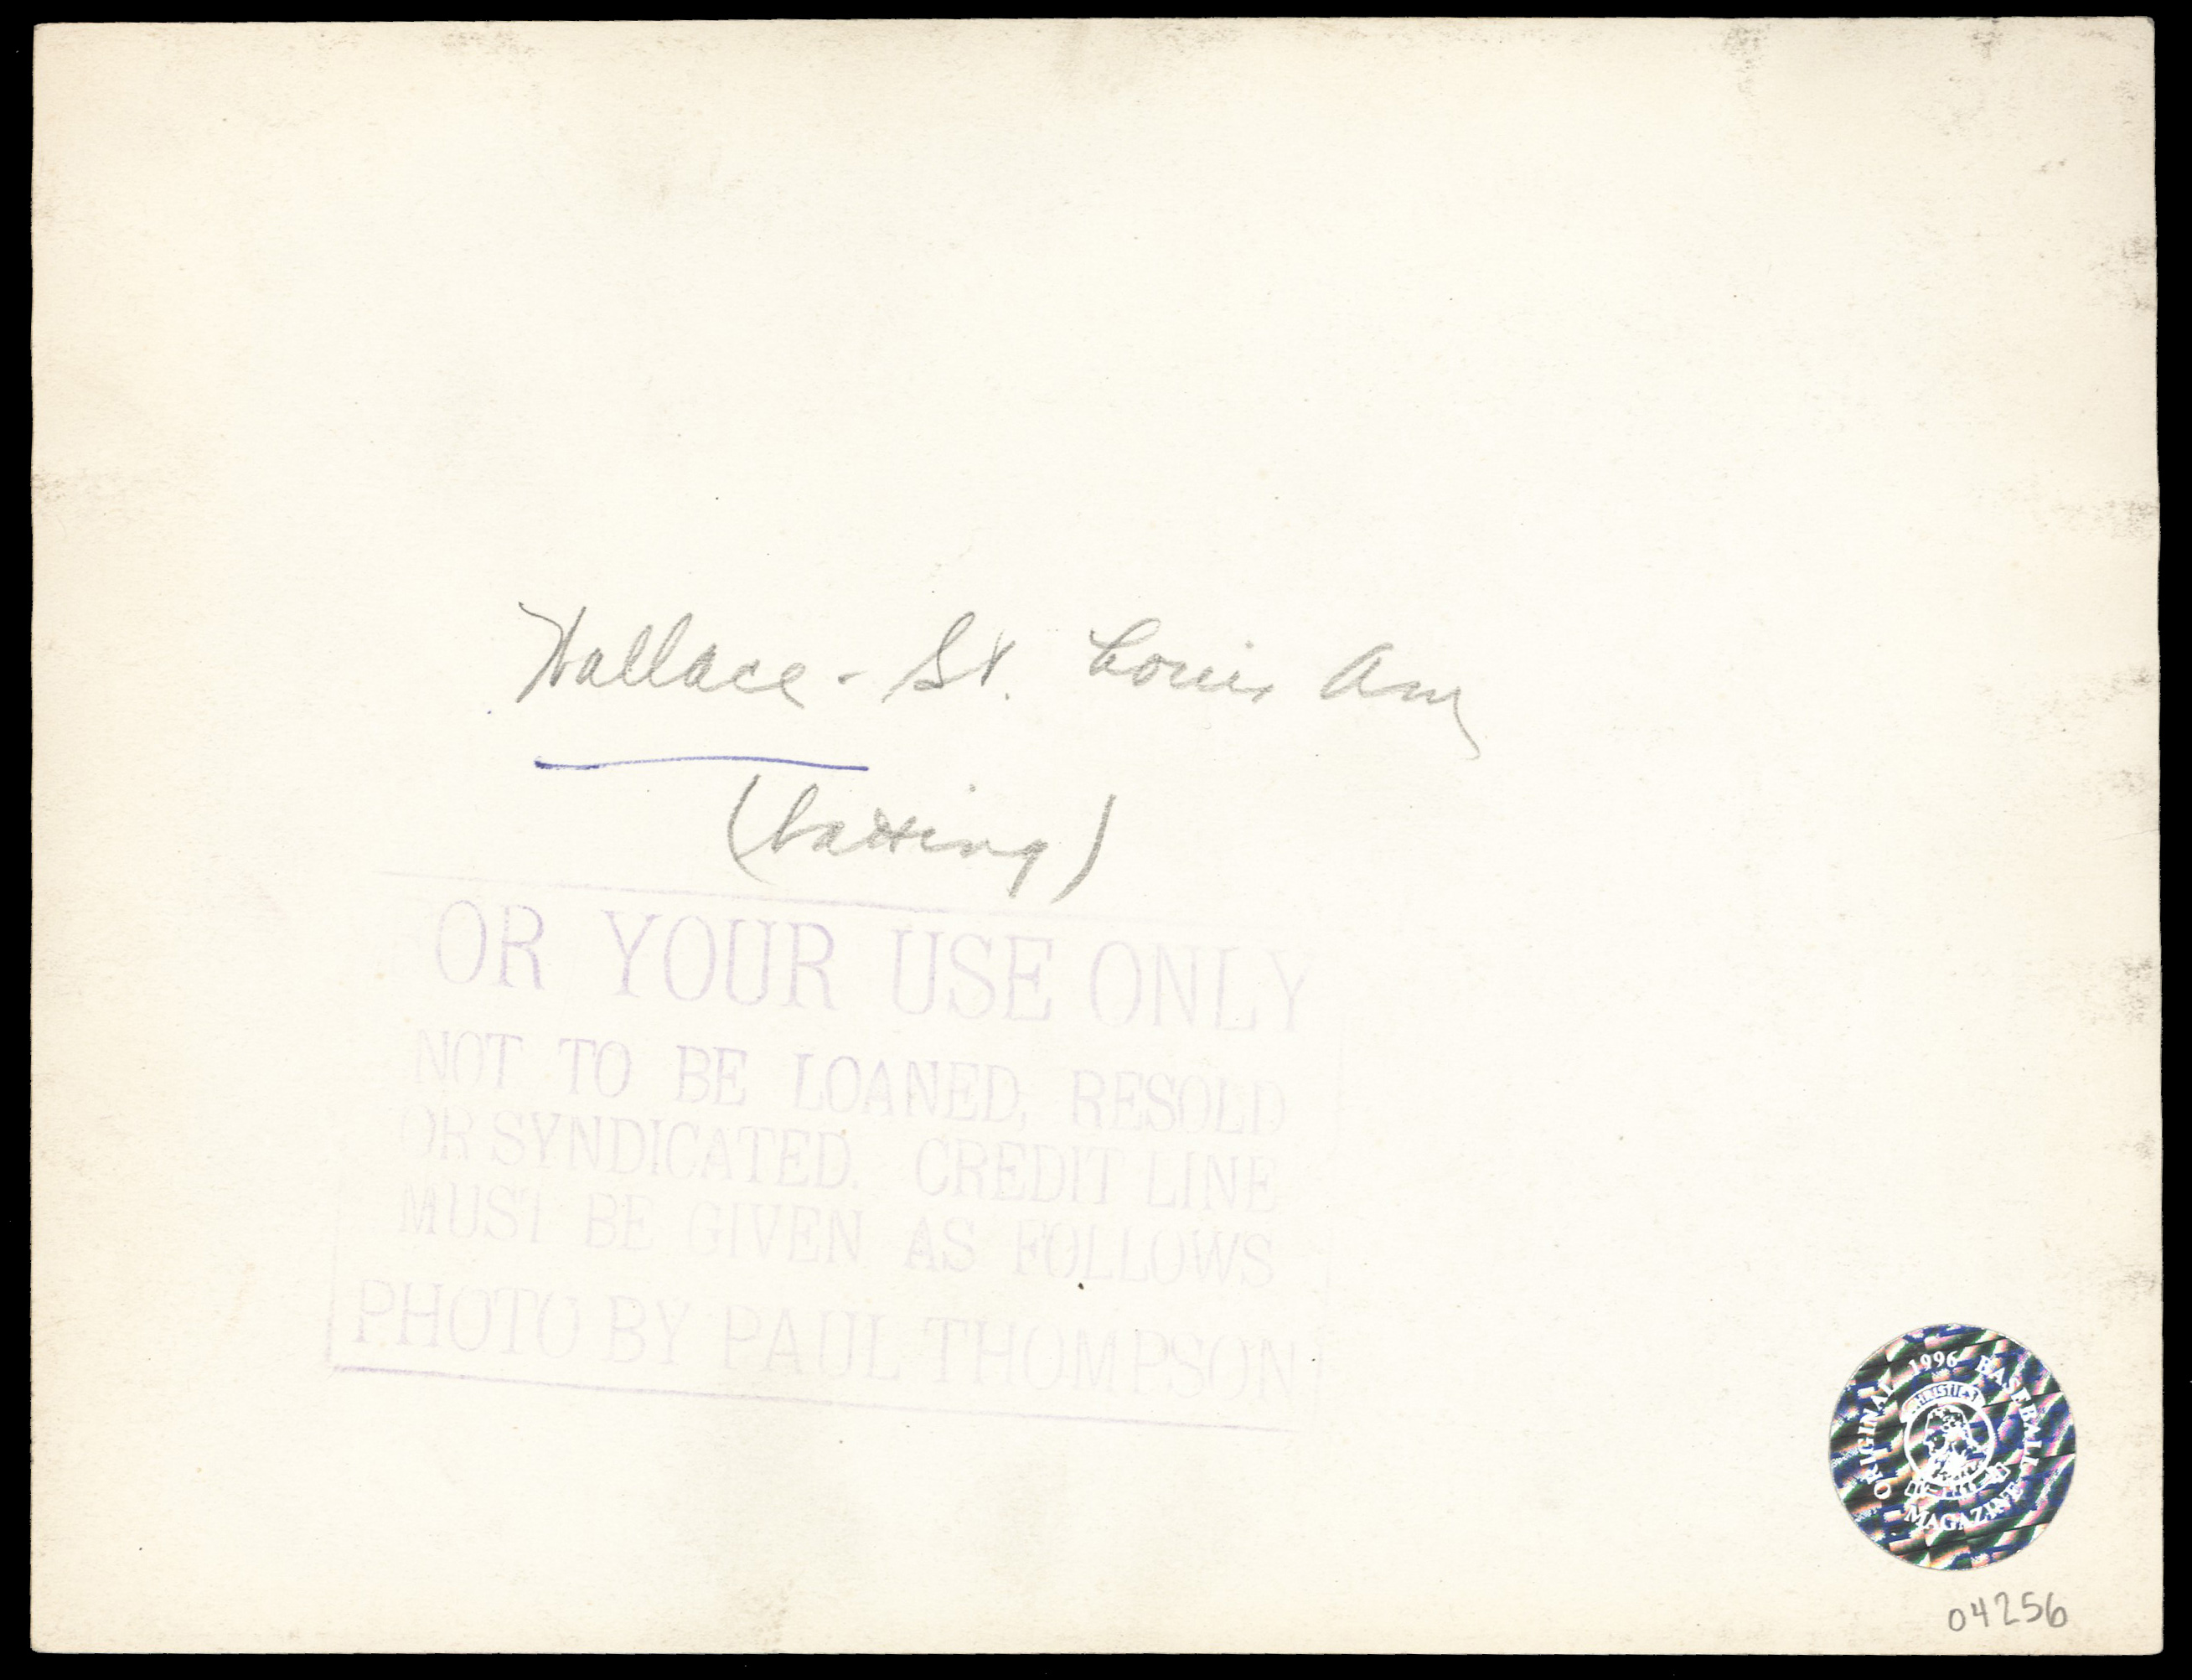 Wallace - St. Louis Am
(batting)
OR YOUR USE ONLY
NOT TO BE LOANED, RESOLD
OR SYNDICATED. CREDIT LINE
MUST BE GIVEN AS FOLLOWS
PHOTO BY PAUL THOMPSON
ORIGINAL 1996 BASEBALL MAGAZINE
CHRISTIE'S
04256